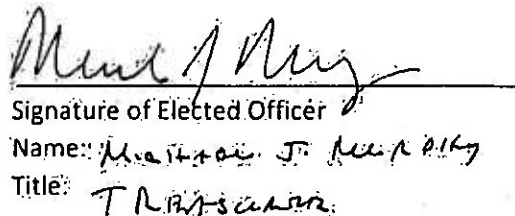 Signature of Elected Officer
Name: Michael J. Murphy
Title: TREASURER